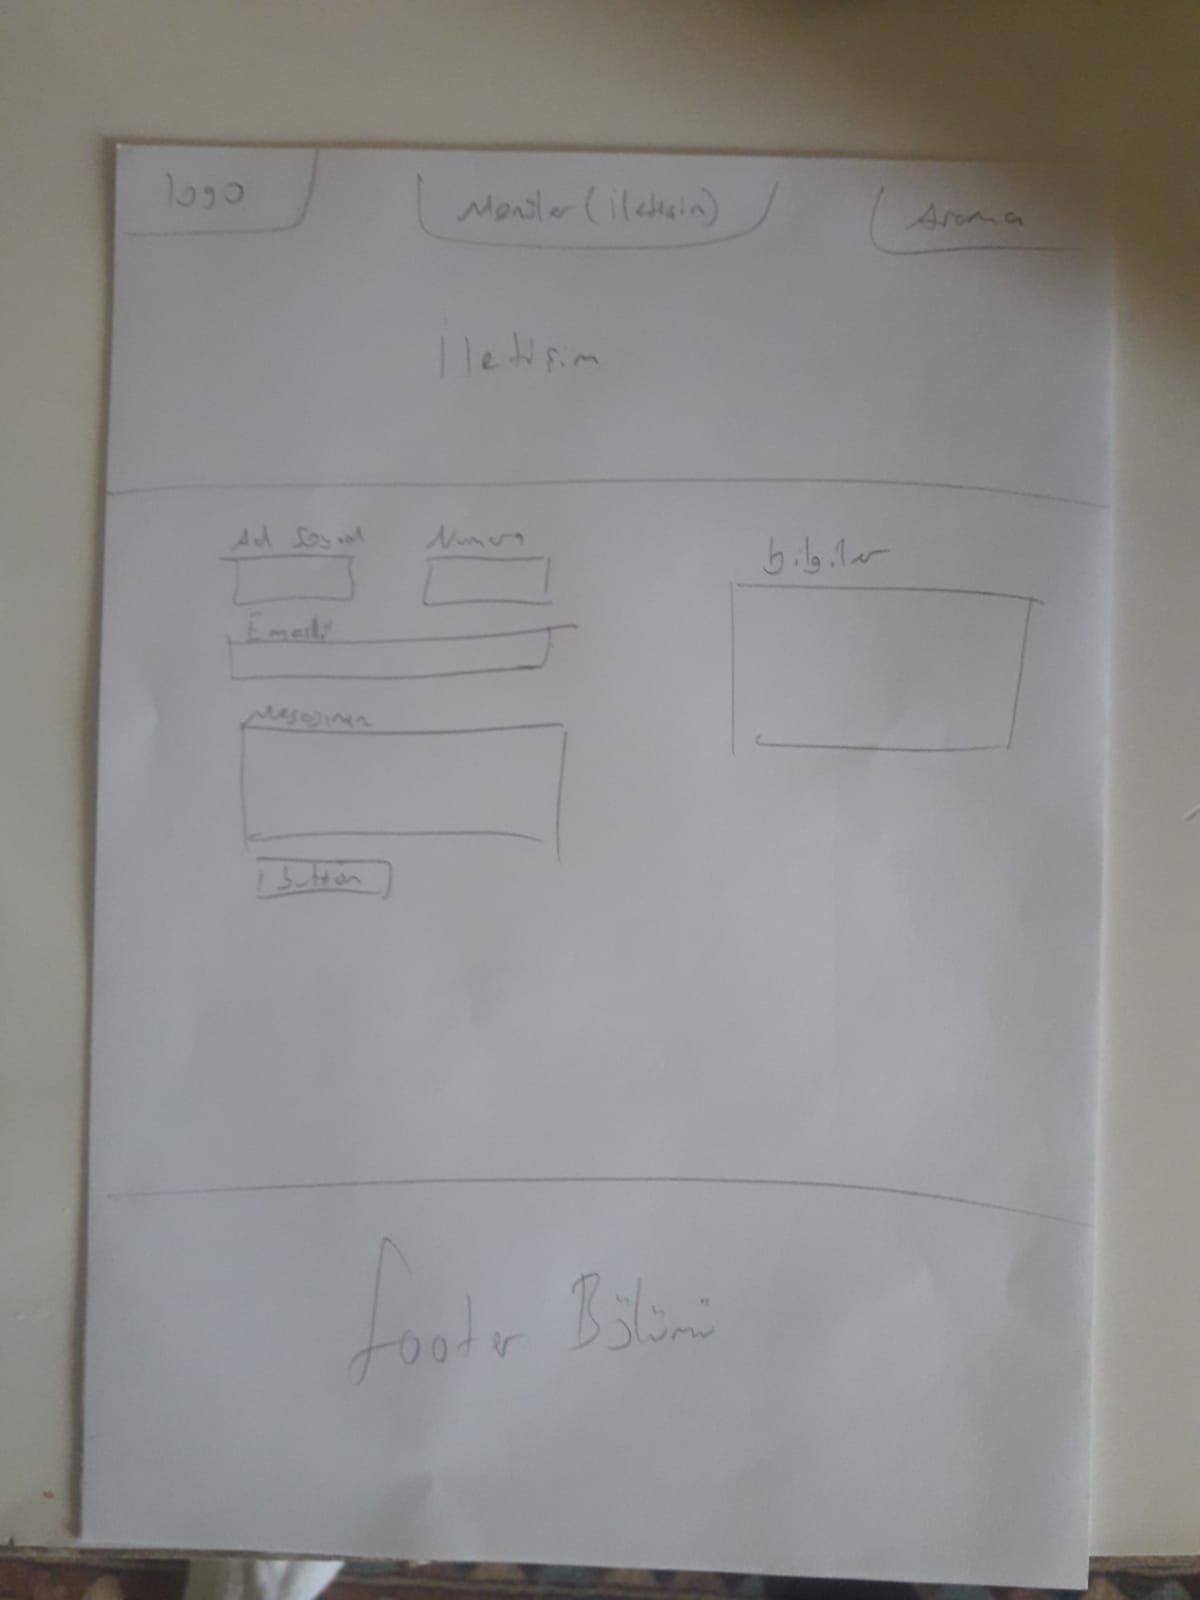 logo
Menüler (iletişim)
Arama
İletişim
Ad Soyad
Numara
Email
Mesajınız
bilgiler
button
footer Bölümü